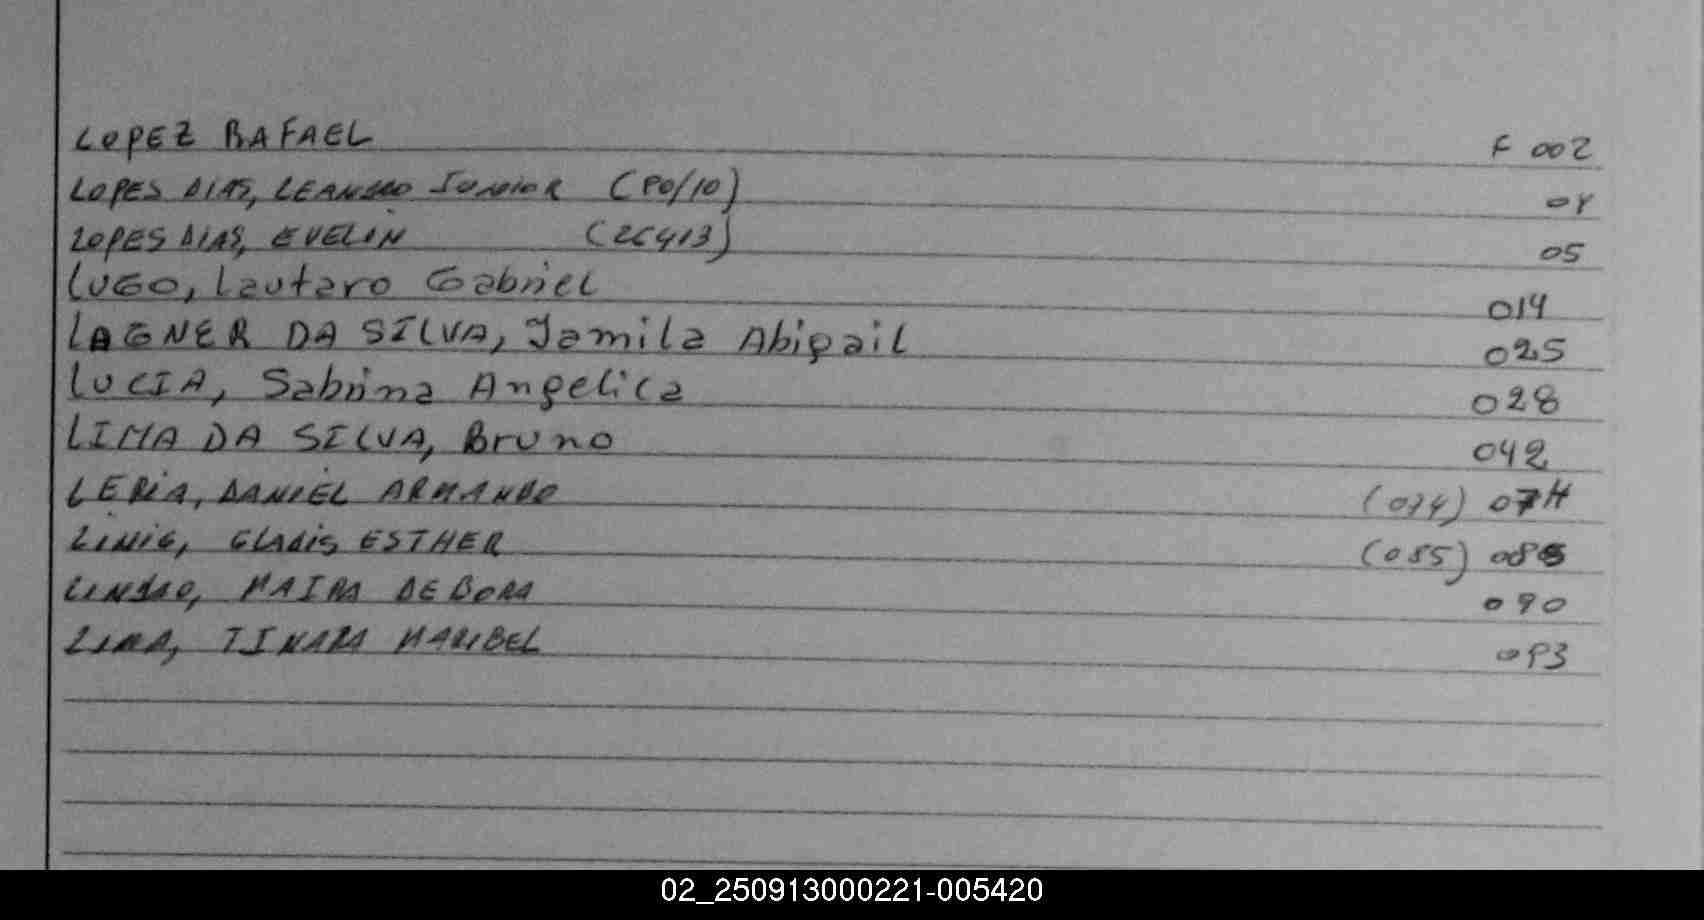 LOPEZ RAFAEL F 002
LOPES DIAS, LEANDRO JUNIOR (PO/10) 04
LOPES DIAS, EVELIN 05
LUGO, Lautaro Gabriel 014
LAGNER DA SILVA, Jamila Abigail 025
LUCIA, Sabrina Angelica 028
LIMA DA SILVA, Bruno 042
LERIA, DANIEL ARMANDO (074) 074
GLADIS ESTHER (085) 085
MAIRA DEBORA 090
LIMA, MARIBEL 093
02_250913000221-005420